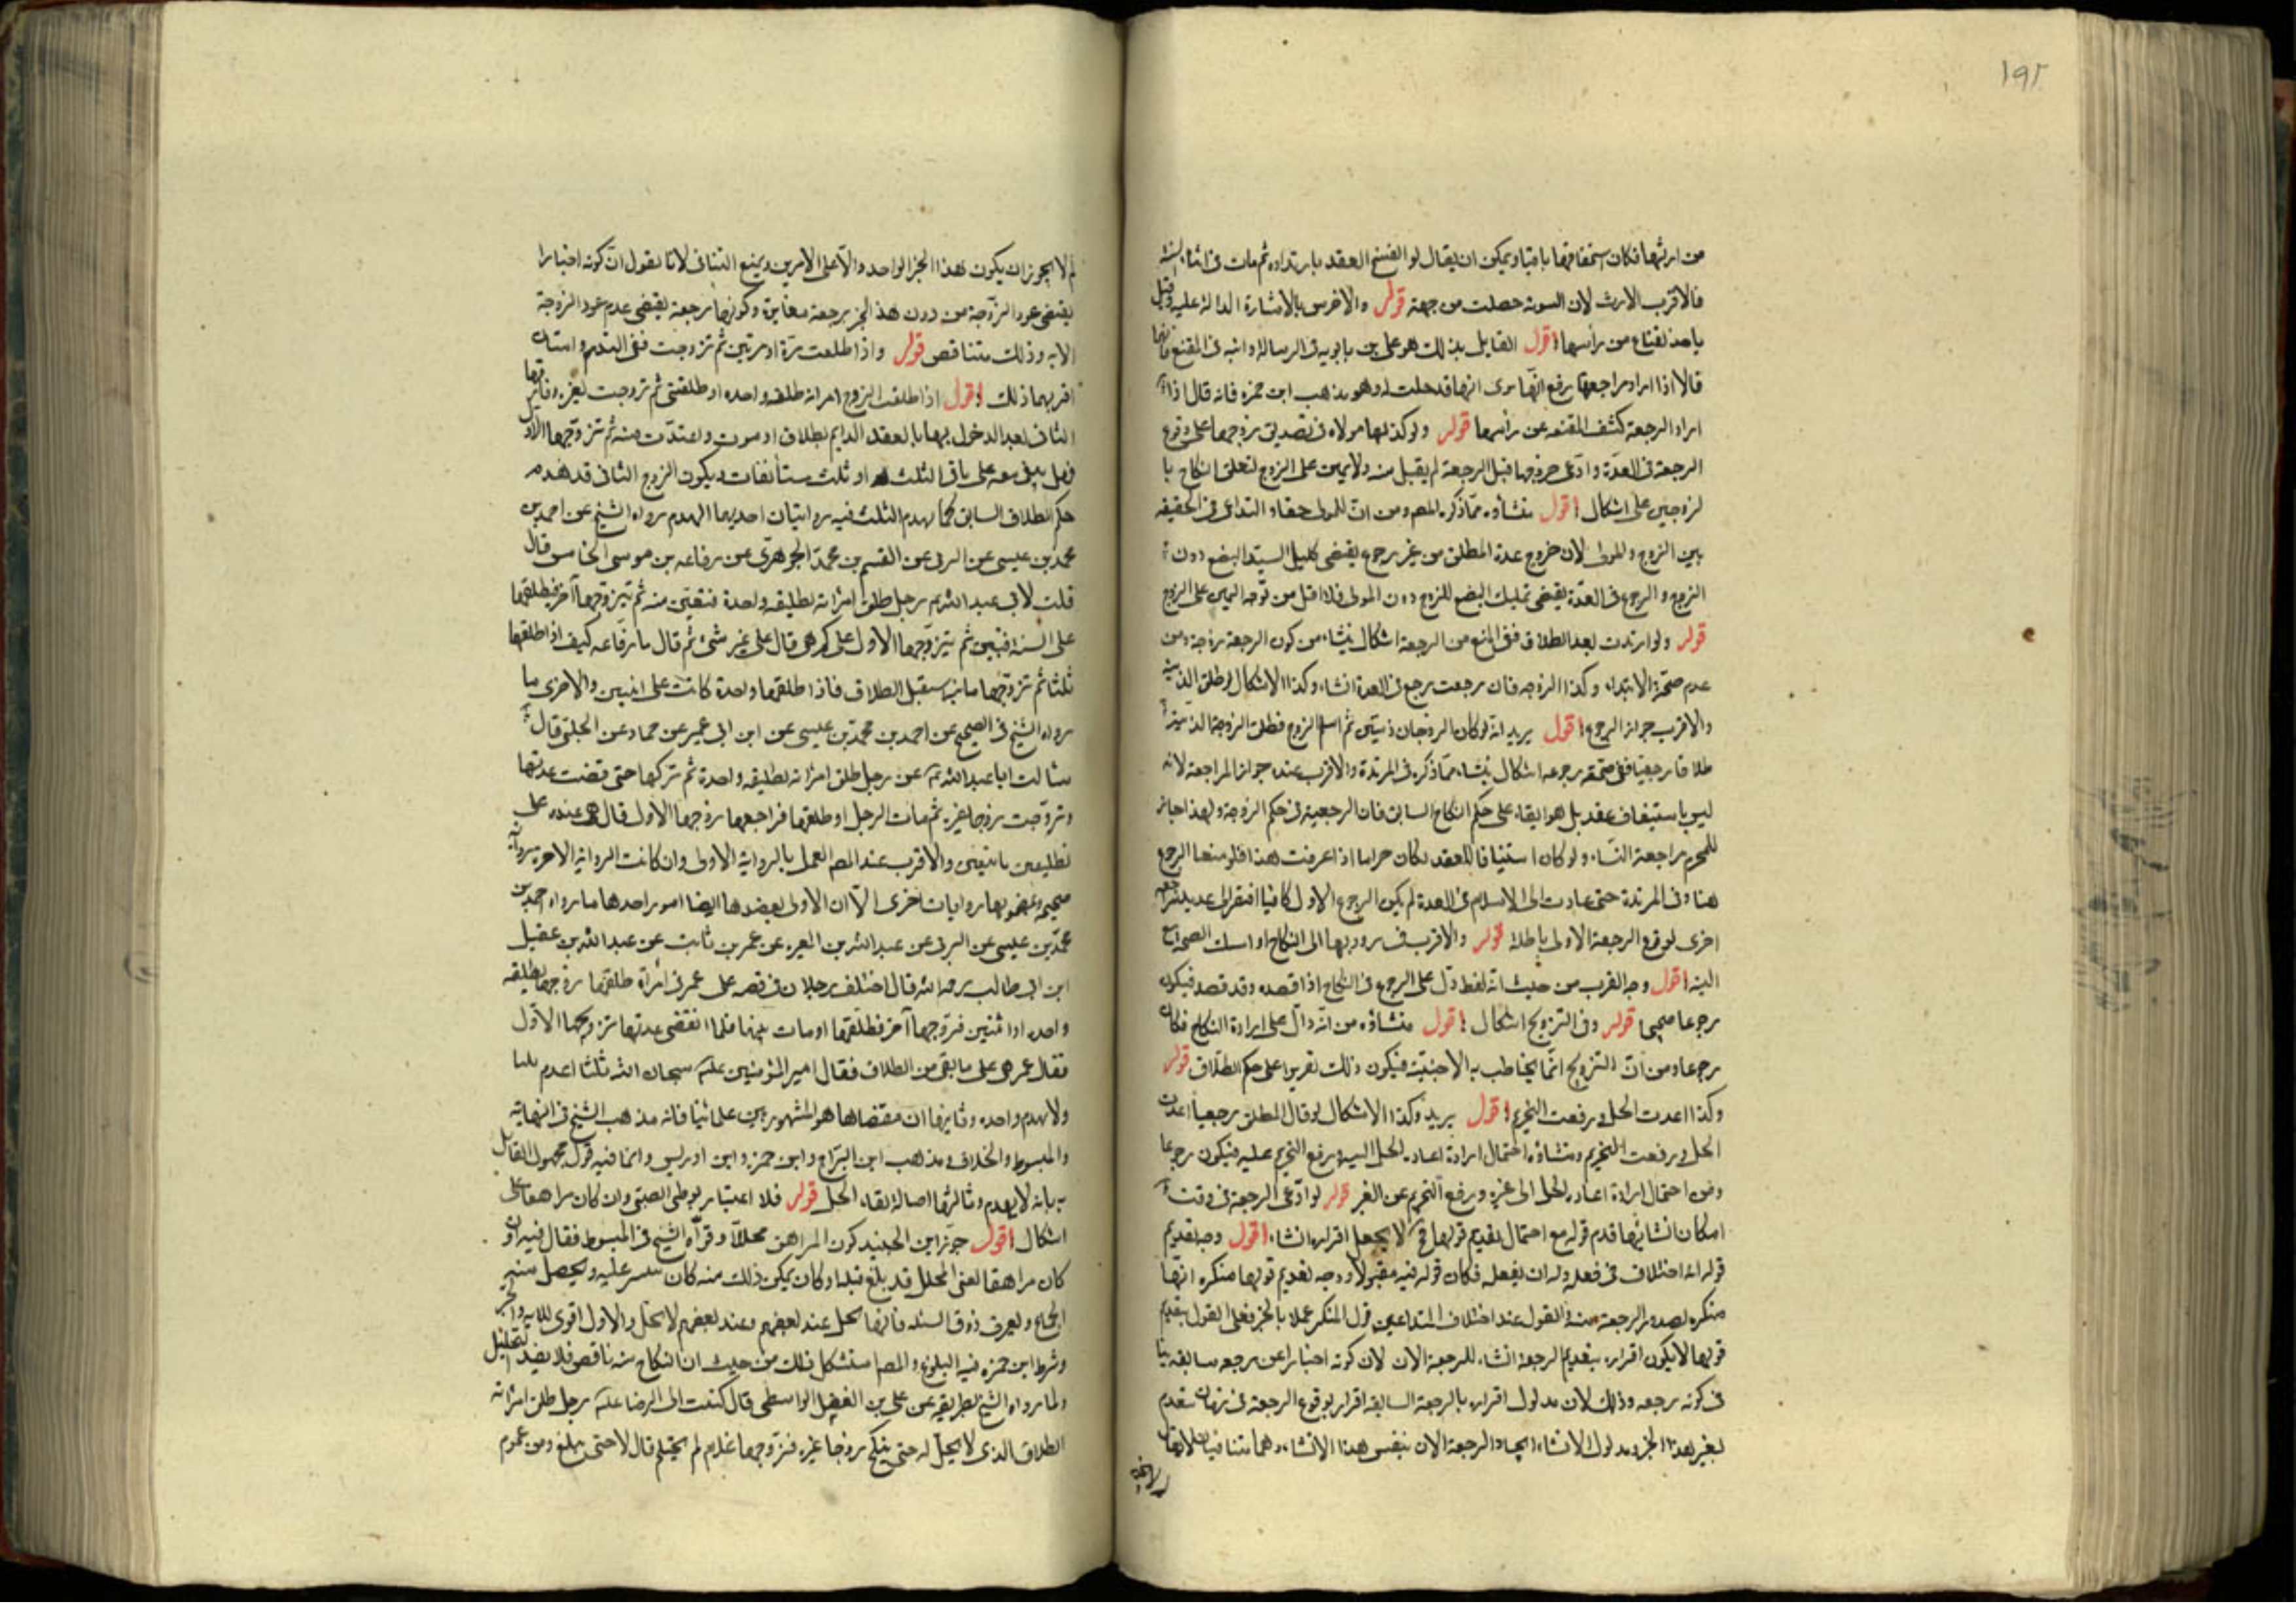 ١٩٢
من ارثها فكان استحقاقها باقيا ويمكن ان يقال لو انفسخ العقد بارتداده ثم مات فى اثناء السنة
فالاقرب الارث لان البينونة حصلت من جهته قوله والاخرس بالاشارة الدالة عليه وقيل
باخذ القناع من رأسها اقول القايل بذلك هو على بن بابويه فى الرسالة وابنه فى المقنع فانهما
قالا اذا اراد مراجعتها رفع القناع يرى انها قد حلت له وهو مذهب ابن حمزه فانه قال اذا
اراد الرجعة كشف المقنعه عن رأسها قوله ولو كذبها مولاه فى تصديق زوجها على وقوع
الرجعة فى العدة وادعى خروجها قبل الرجعة لم يقبل منه ولا يمين على الزوج لتعلق النكاح با
لزوجين على اشكال اقول منشأه مما ذكره المصم ومن ان للمولى حقا والتداعى فى الحقيقه
بين الزوج والمولى لان خروج عدة المطلق من غير رجوع يقتضى تمليك السيد البضع دون
الزوج والرجوع فى العدة يقتضى تمليك البضع للزوج دون المولى فلا اقل من توجه اليمين على الزوج
قوله ولو ارتدت بعد الطلاق ففى المنع من الرجعة اشكال ينشاء من كون الرجعة زوجة ومن
عدم صحة الابتداء وكذا الزوجه فان رجعت رجع فى العدة انشاء وكذا الاشكال لو طلق الذميه
والاقرب جواز الرجوع اقول يريد انه لو كان الزوجان ذميين ثم اسلم الزوج فطلق الزوجة الذمية
طلاقا رجعيا ففى صحة رجوعه اشكال ينشاء مما ذكره فى المرتدة والاقرب عنده جواز المراجعة لانه
ليس باستيناف عقد بل هو ابقاء على حكم النكاح السابق فان الرجعية فى حكم الزوجة ولهذا جاز
للمحرم مراجعة النساء ولو كان استينافا للعقد لكان حراما اذا عرفت هذا فلو منعنا الرجوع
هنا وفى المرتدة حتى عادت الى الاسلام فى العدة لم يكن الرجوع الاول كافيا افتقر الى تجديد مراجعه
اخرى لوقوع الرجعة الاولى باطلة قوله والاقرب فى رددتها الى النكاح او امسكت الصحة مع
النيه اقول وجه القرب من حيث انه لفظ دل على الرجوع فى النكاح اذا قصده وقد قصد فيكون
رجوعا صحيحا قوله وفى التزويج اشكال اقول منشاؤه من انه دال على ارادة النكاح فكان
رجوعا ومن ان التزويج انما يخاطب به الاجنبية فيكون ذلك تقريرا على حكم الطلاق قوله
وكذا اعدت الحل ورفعت التحريم اقول يريد وكذا الاشكال لو قال المطلق رجعيا اعدت
الحل ورفعت التحريم ومنشاؤه احتمال ارادة اعادة الحل اليه ورفع التحريم عليه فيكون رجوعا
ومن احتمال ارادة اعادة الحل الى غيره ورفع التحريم عن الغير قوله لو ادعى الرجعة فى وقت
امكان انشائها قدم قوله مع احتمال تقديم قولها لا يجعل اقراره انشاء اقول وجه تقديم
قوله انه اختلاف فى فعله وله ان يفعله فكان قوله فيه مقبولا ووجه تقديم قولها منكره انها
منكره لصدور الرجعة منه والقول عند اختلاف المتداعيين قول المنكر عملا بالخبر فعلى القول بتقديم
قولها لا يكون اقراره بتقديم الرجعة انشاء للرجعة الان لان كونه اخبارا عن رجعه سابقه ينا
فى كونه رجعه وذلك لان مدلول اقراره بالرجعة السابقة اقرار بوقوع الرجعة فى زمان متقدم
لغير هذا الخبر ومدلول الانشاء ايجاد الرجعة الان بنفس هذا الانشاء وهما متنافيان لا يقال
لم لا يجوز ان يكون هذا الخبر الواحد دالا على الامرين ويمنع التنافى لانا نقول ان كونه اخبارا
يقتضى عود الزوجة من دون هذا الخبر برجعة مغايرة وكونها رجعة يقتضى عدم عود الزوجة
الا به وذلك متناقص قوله واذا طلقت مرة او مرتين ثم تزوجت ففى الهدم روايتان
اقربهما ذلك اقول اذا طلقت الزوج امراته طلقه واحده او طلقتين ثم تزوجت بغيره وفارقها
الثانى بعد الدخول بها بالعقد الدايم بطلاق او موت واعتدت منه ثم تزوجها الاول
فهل يبقى معه على باقى الثلث او ثلث مستأنفات ويكون الزوج الثانى قد هدم
حكم الطلاق السابق كما يهدم الثلث فيه روايتان احديهما الهدم رواه الشيخ عن احمد بن
محمد بن عيسى عن البرقى عن القسم بن محمد الجوهرى عن رفاعه بن موسى النخاس قال
قلت لابى عبد الله ع رجل طلق امراته تطليقه واحدة فتبين منه ثم يتزوجها آخر فيطلقها
على السنة فتبين ثم يتزوجها الاول على كم هى قال على غير شئ ثم قال يا رفاعه كيف اذا طلقها
ثلثا ثم تزوجها ثانية استقبل الطلاق فاذا طلقها واحدة كانت على اثنين والاخرى ما
رواه الشيخ فى الصحيح عن احمد بن محمد بن عيسى عن ابن ابى عمير عن حماد عن الحلبى قال
سالت ابا عبد الله ع عن رجل طلق امراته تطليقه واحدة ثم تركها حتى قضت عدتها
وتزوجت زوجا غيره ثم مات الرجل او طلقها فراجعها زوجها الاول قال هى عنده على
تطليقتين باقيتين والاقرب عند المصم العمل بالرواية الاولى وان كانت الرواية الاخره مروية
صحيحه وبمضمونها روايات اخرى الا ان الاولى يعضدها ايضا امور احدها ما رواه احمد بن
محمد بن عيسى عن البرقى عن عبد الله بن المغيره عن عمر بن ثابت عن عبد الله بن عقيل
ابن ابى طالب رحمه الله قال اختلف رجلان فى قصه على وعمر فى امرأة طلقها زوجها تطليقه
واحده او اثنتين فتزوجها آخر فطلقها او مات عنها فلما انقضى عدتها تزوجها الاول
فقال عمر هى على ما بقى من الطلاق فقال امير المؤمنين عليه سبحان الله ثلثا يهدم ثلثا
ولا يهدم واحده وثانيها ان مقتضاها هو المشهور بين علمائنا فانه مذهب الشيخ فى النهاية
والمبسوط والخلاف ومذهب ابن البراج وابن حمزه وابن ادريس وانما فيه قول مجهول القائل
به بانه لا يهدم وثالثها اصالة بقاء الحل قوله فلا اعتبار بوطى الصبى وان كان مراهقا على
اشكال اقول جوز ابن الجنيد كون المراهق محللا وقواه الشيخ فى المبسوط فقال فيه وان
كان مراهقا لغى المحلل قد بلغ مبلغا وكان يمكن ذلك منه كان عليه ويحصل منه
الجماع ويعرف ذوق العسيله فانها تحل عند بعضهم وعند بعضهم لا تحل والاول اقوى للايه والخبر
وشرط ابن حمزه فيه البلوغ والمصم استشكل ذلك من حيث ان النكاح منه ناقص فلا يفيد التحليل
ولما رواه الشيخ بطريقه عن على بن الفضل الواسطى قال كتبت الى الرضا عليه رجل طلق امراته
الطلاق الذى لا تحل له حتى تنكح زوجا غيره فتزوجها غلام لم يحتلم قال لا حتى يبلغ ومن عموم